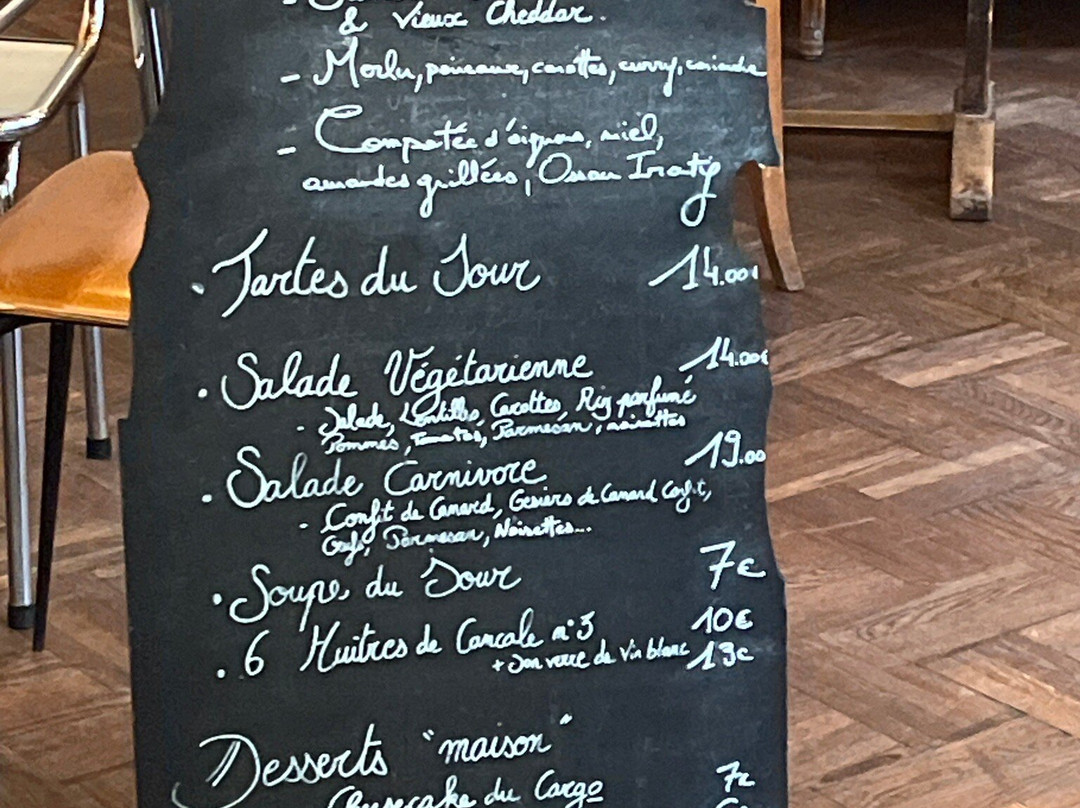 & Vieux Cheddar.
- Merlu, poireaux, carottes, curry, coriandre
- Compotée d'oignons, miel,
amandes grillées, Ossau Iraty
• Tartes du Jour 14.00€
• Salade Végétarienne 14.00€
- Salade, Lentilles, Carottes, Riz parfumé
Pommes, Tomates, Parmesan, noisettes
• Salade Carnivore 19.00
- Confit de Canard, Gesiers de Canard Confit,
Oeufs, Parmesan, Noisettes...
• Soupe du Jour 7€
• 6 Huitres de Cancale n°3 10€
+ Son verre de Vin blanc 13€
Desserts "maison"
Cheesecake du Cargo 7€